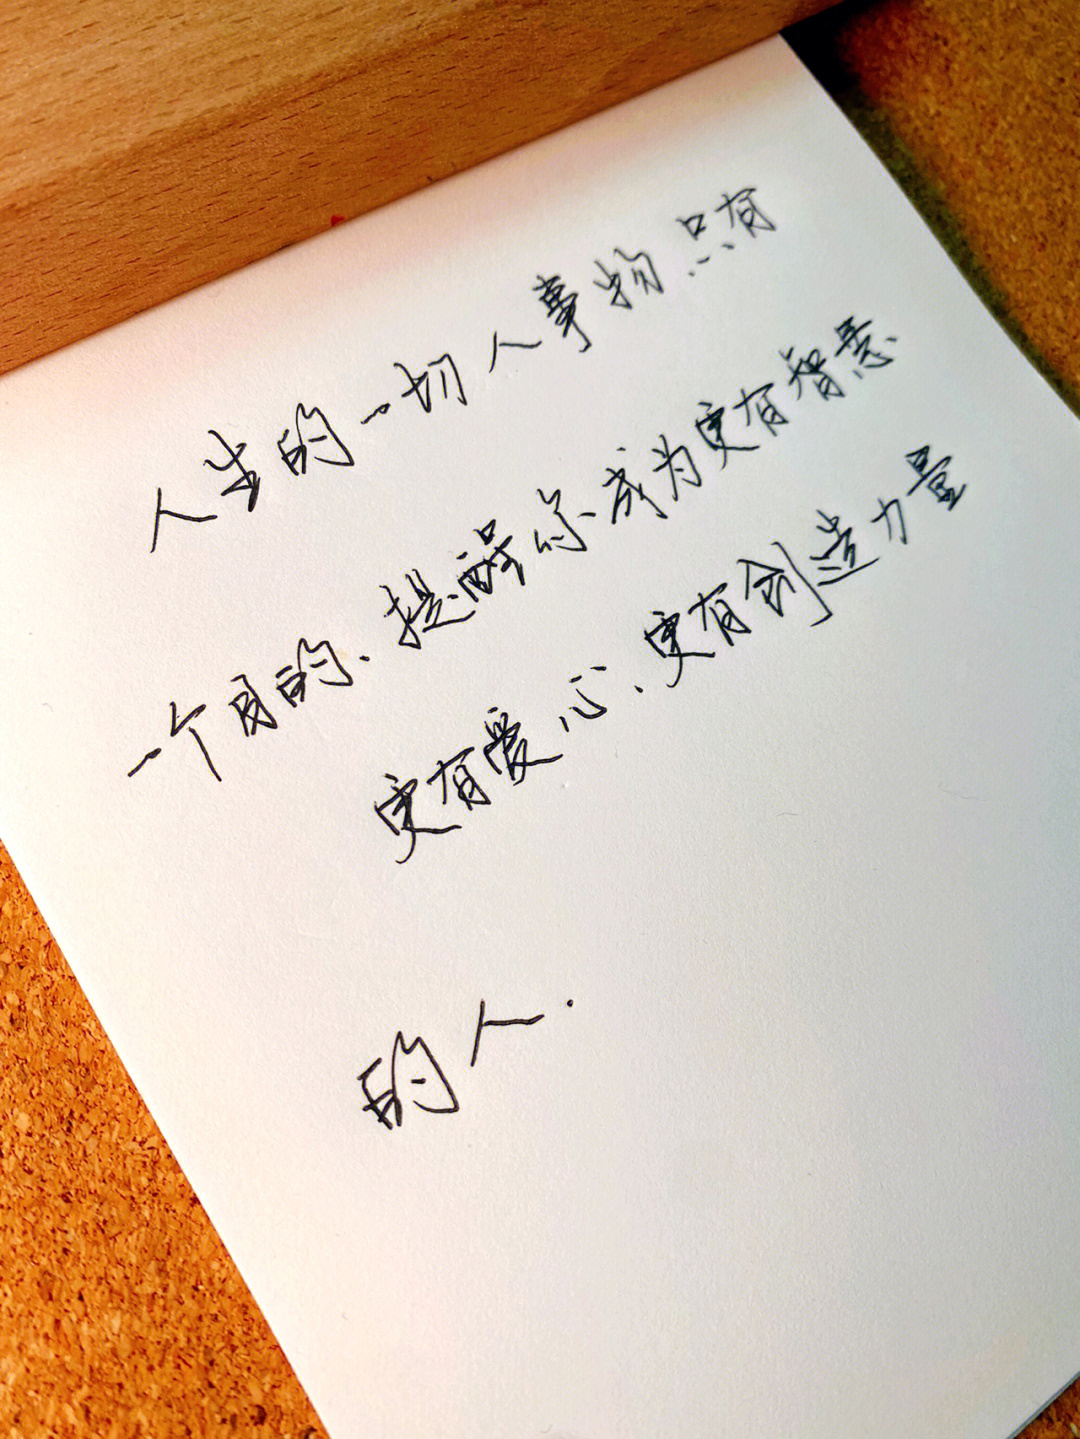 人生的一切人事物只有
一个目的、提醒你成为更有智慧
更有爱心、更有创造力量
的人.